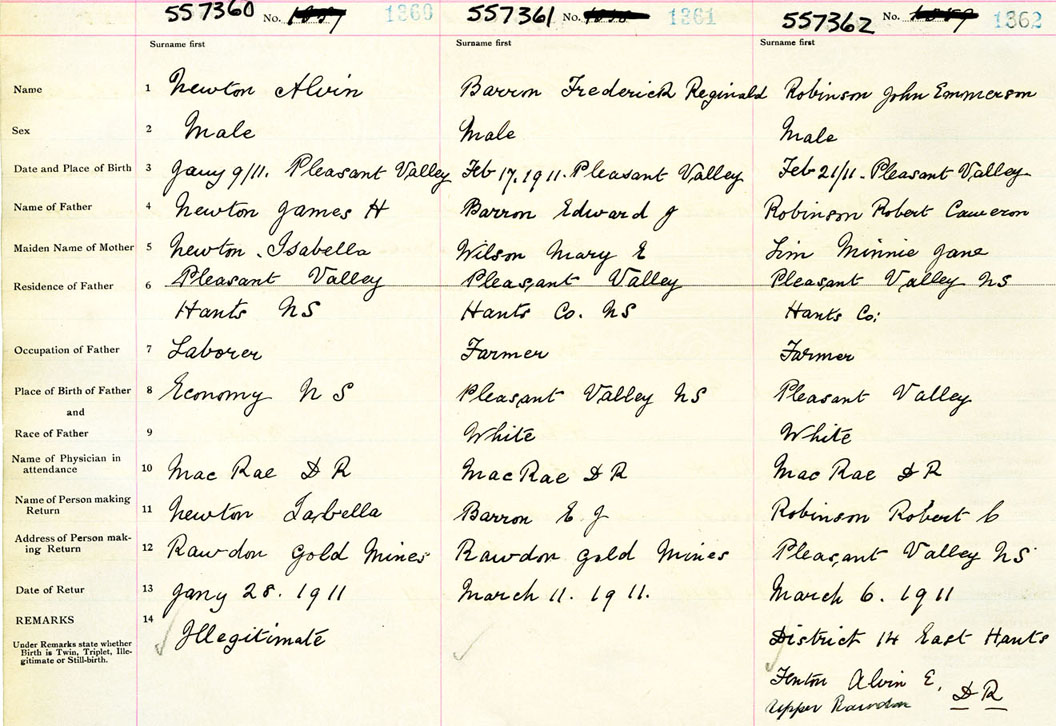 557360 No. 1360 557361 No. 1361 557362 No. 1362
Surname first Surname first Surname first
Name 1 Newton Alvin Barron Frederick Reginald Robinson John Emmerson
Sex 2 Male Male Male
Date and Place of Birth 3 Jany 9/11. Pleasant Valley Feb 17. 1911. Pleasant Valley Feb 21/11 - Pleasant Valley
Name of Father 4 Newton James H Barron Edward J Robinson Robert Cameron
Maiden Name of Mother 5 Newton Isabella Wilson Mary E Lim Minnie Jane
Residence of Father 6 Pleasant Valley Pleasant Valley Pleasant Valley NS
Hants NS Hants Co. NS Hants Co;
Occupation of Father 7 Laborer Farmer Farmer
Place of Birth of Father 8 Economy N S Pleasant Valley NS Pleasant Valley
and
Race of Father 9 White White
Name of Physician in
attendance 10 MacRae D R MacRae D R MacRae D R
Name of Person making
Return 11 Newton Isabella Barron E. J Robinson Robert C
Address of Person mak-
ing Return 12 Rawdon Gold Mines Rawdon Gold Mines Pleasant Valley NS
Date of Retur 13 Jany 28. 1911 March 11. 1911. March 6. 1911
REMARKS 14
Under Remarks state whether
Birth is Twin, Triplet, Ille-
gitimate or Still-birth.
Illegitimate District 14 East Hants
Fenton Alvin E. D R
Upper Rawdon